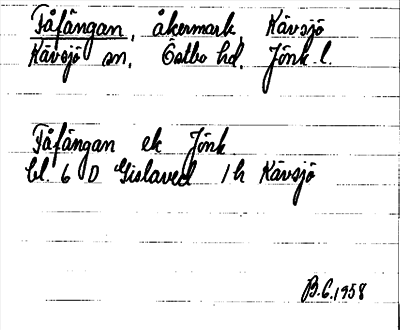 Fåfängan, åkermark, Kävsjö
Kävsjö sn, Östbo hd. Jönk. l.
Fåfängan ek Jönk
bl. 6 D Gislaved 1h Kävsjö
B.C. 1958